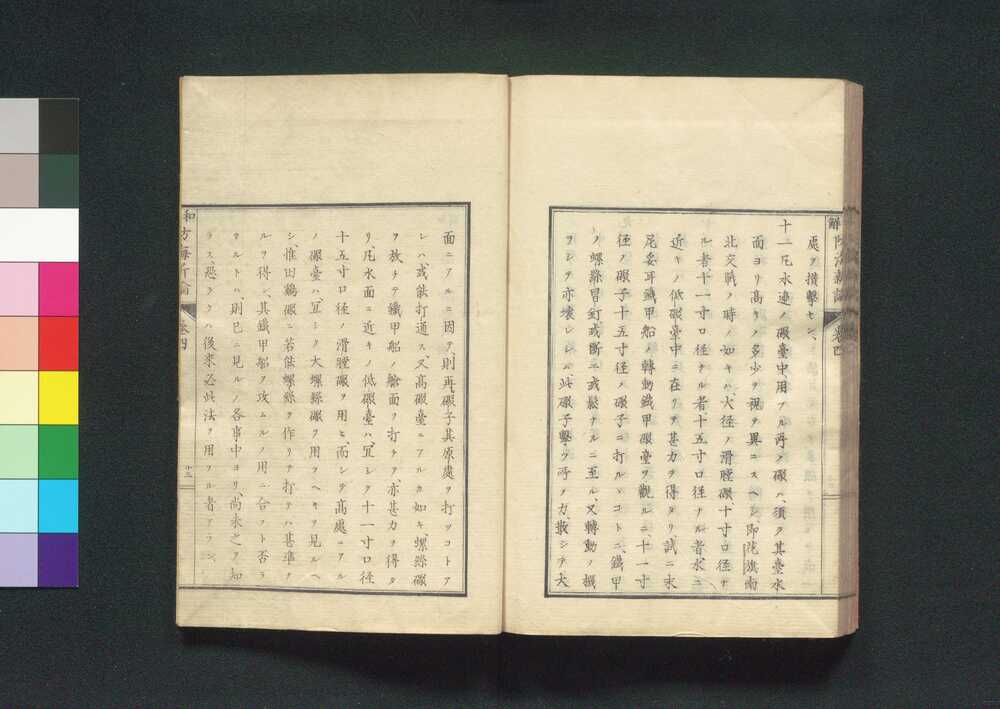 處ヲ攅擊セシ、
十二凡水邊ノ礮臺中、用フル所ノ礮ハ、須ク其臺水
面ヨリ高キノ多少ヲ視テ異ニスヘシ、即花旗南
北交戰ノ時ノ如キハ、大徑ノ滑膛礮、十寸口徑ナ
ル者、十一寸口徑ナル者、十五寸口徑ナル者、水ニ
近キノ低礮臺中ニ在リテ甚力ヲ得タリ、試ニ末
尼妥耳鐵甲船ノ轉動鐵甲礮臺ヲ觀ルニ、十一寸
徑ノ礮子、十五寸徑ノ礮子ニ打ルヽコトニ、鐵甲
ノ螺絲冒釘或斷ニ或鬆ナルニ至ル、又轉動ノ機
ヲシテ亦壞レシム、此礮子擊ツ所ノ力、散シテ大
面ニアルニ因テ、則再礮子其原處ヲ打ツコトア
レハ、或能打通ス、又高礮臺ニアルカ如キ、螺絲礮
ヲ放チテ鐵甲船ノ艙面ヲ打チテ、亦甚力ヲ得タ
リ、凡水面ニ近キノ低礮臺ハ、宜シク十一寸口徑
十五寸口徑ノ滑膛礮ヲ用ヒ、而シテ高處ニアル
ノ礮臺ハ、宜シク大螺絲礮ヲ用フヘキヲ見ルヘ
シ、惟田鷄礮ニ若能螺絲ヲ作リテ打テハ甚準ナ
ルヲ得シ、其鐵甲船ヲ攻ムルノ用ニ合フト否ラ
サルトハ、則已ニ見ルノ各事中ヨリ、尚未之ヲ知
ラス、恐ラクハ後來必此法ヲ用フル者アラン、
卷四
十三